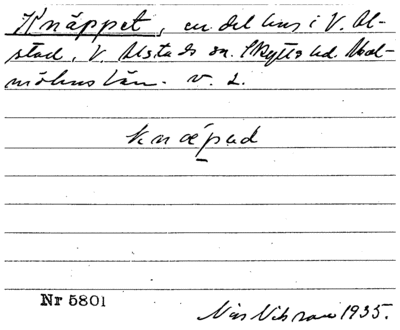 Knäppet, en del hus i V. Al-
stad, V. Alstads sn. Skytts hd. Mal-
möhus län. v. 2.
knæ̣pəd
Nr 5801
Nils Nilsson 1935.